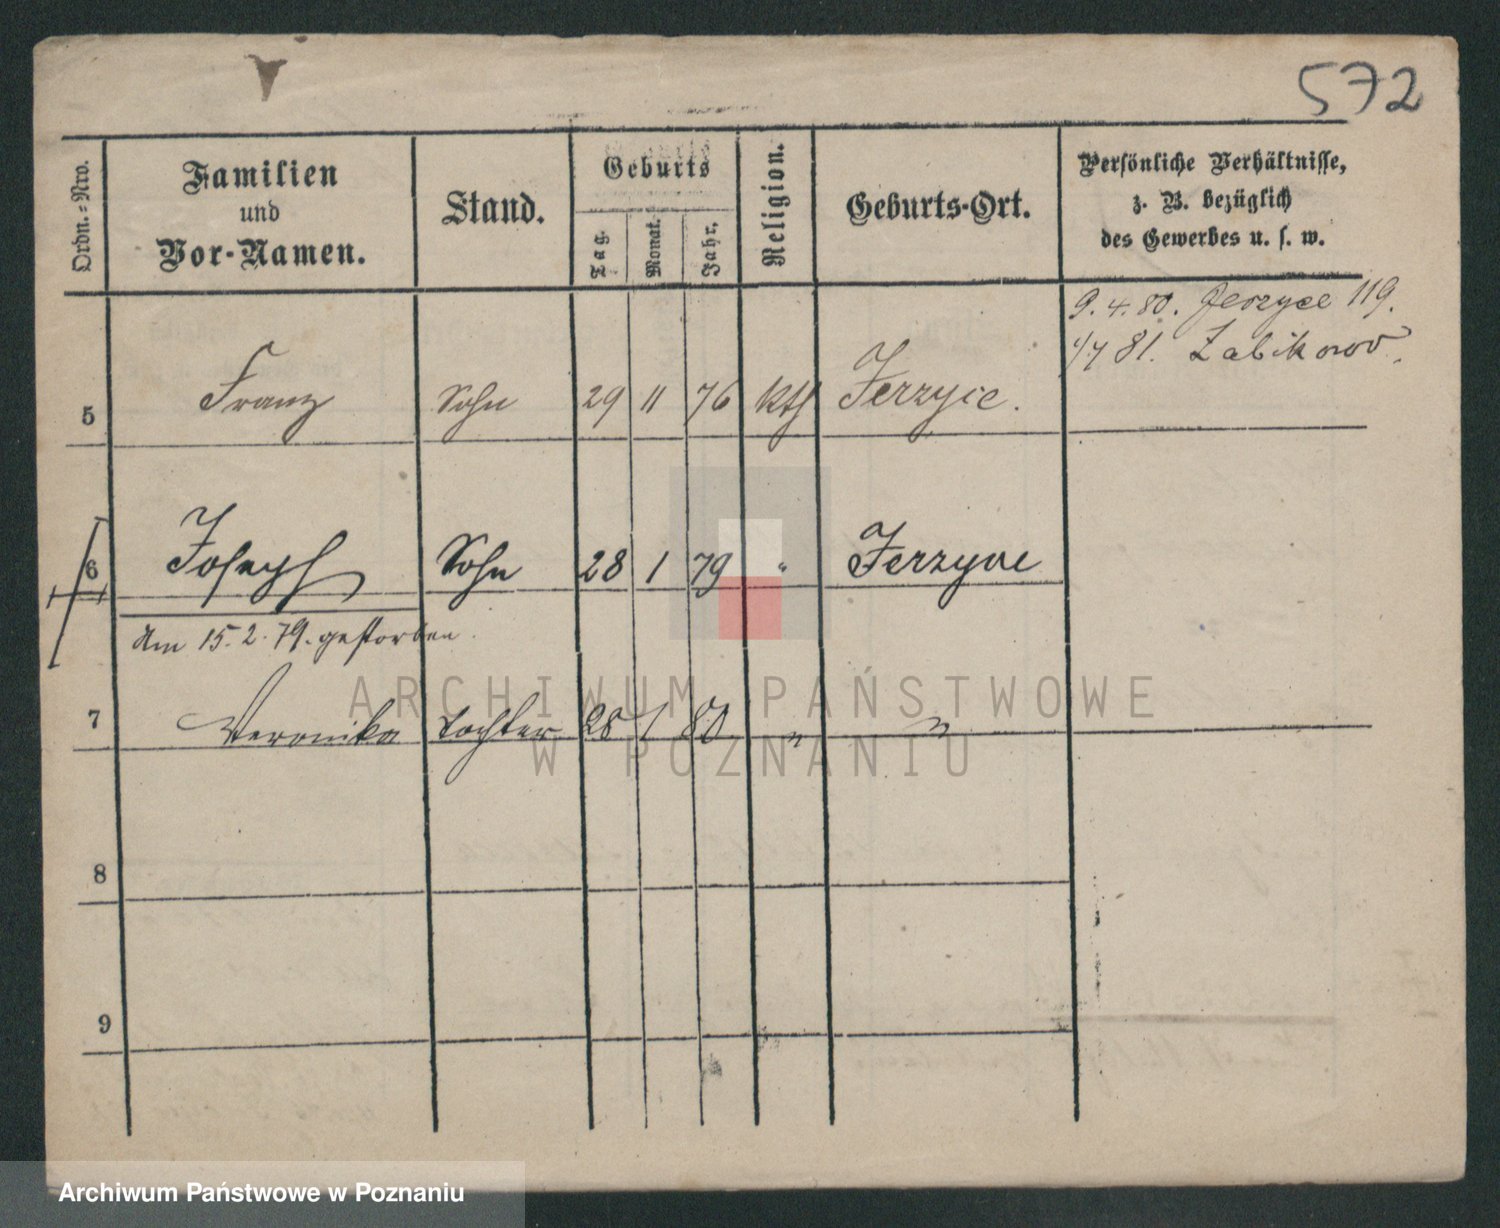 572
Ordn.-Nro.
Familien
und
Vor-Namen.
Stand.
Geburts
Tag.
Monat.
Jahr.
Religion.
Geburts-Ort.
Persönliche Verhältnisse,
z. B. bezüglich
des Gewerbes u. s. w.
9.4.80. Jerzyce 119.
1/7 81. Zabikowo.
5 Franz Sohn 29 11 76 kth Jerzyce.
6 Joseph Sohn 28 1 79 " Jerzyce
Am 15.2.79. gestorben.
7 Veronika Tochter 28 1 80 " "
8
9
ARCHIWUM PAŃSTWOWE
W POZNANIU
Archiwum Państwowe w Poznaniu